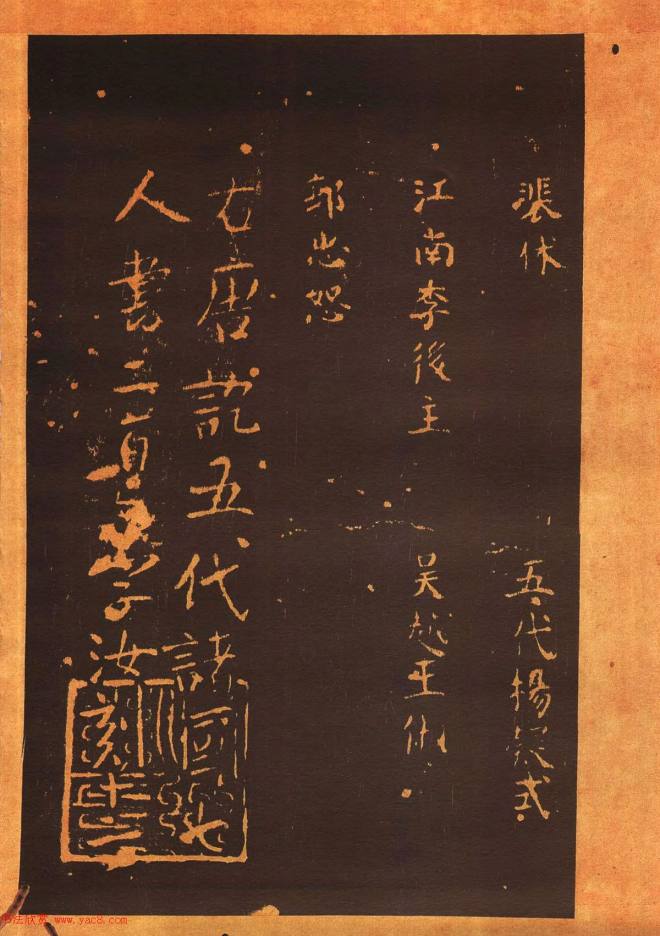 裴休 五代楊凝式
江南李後主 吳越王俶
郭忠恕
右唐訖五代諸國七
人書二百 字汝刻十二